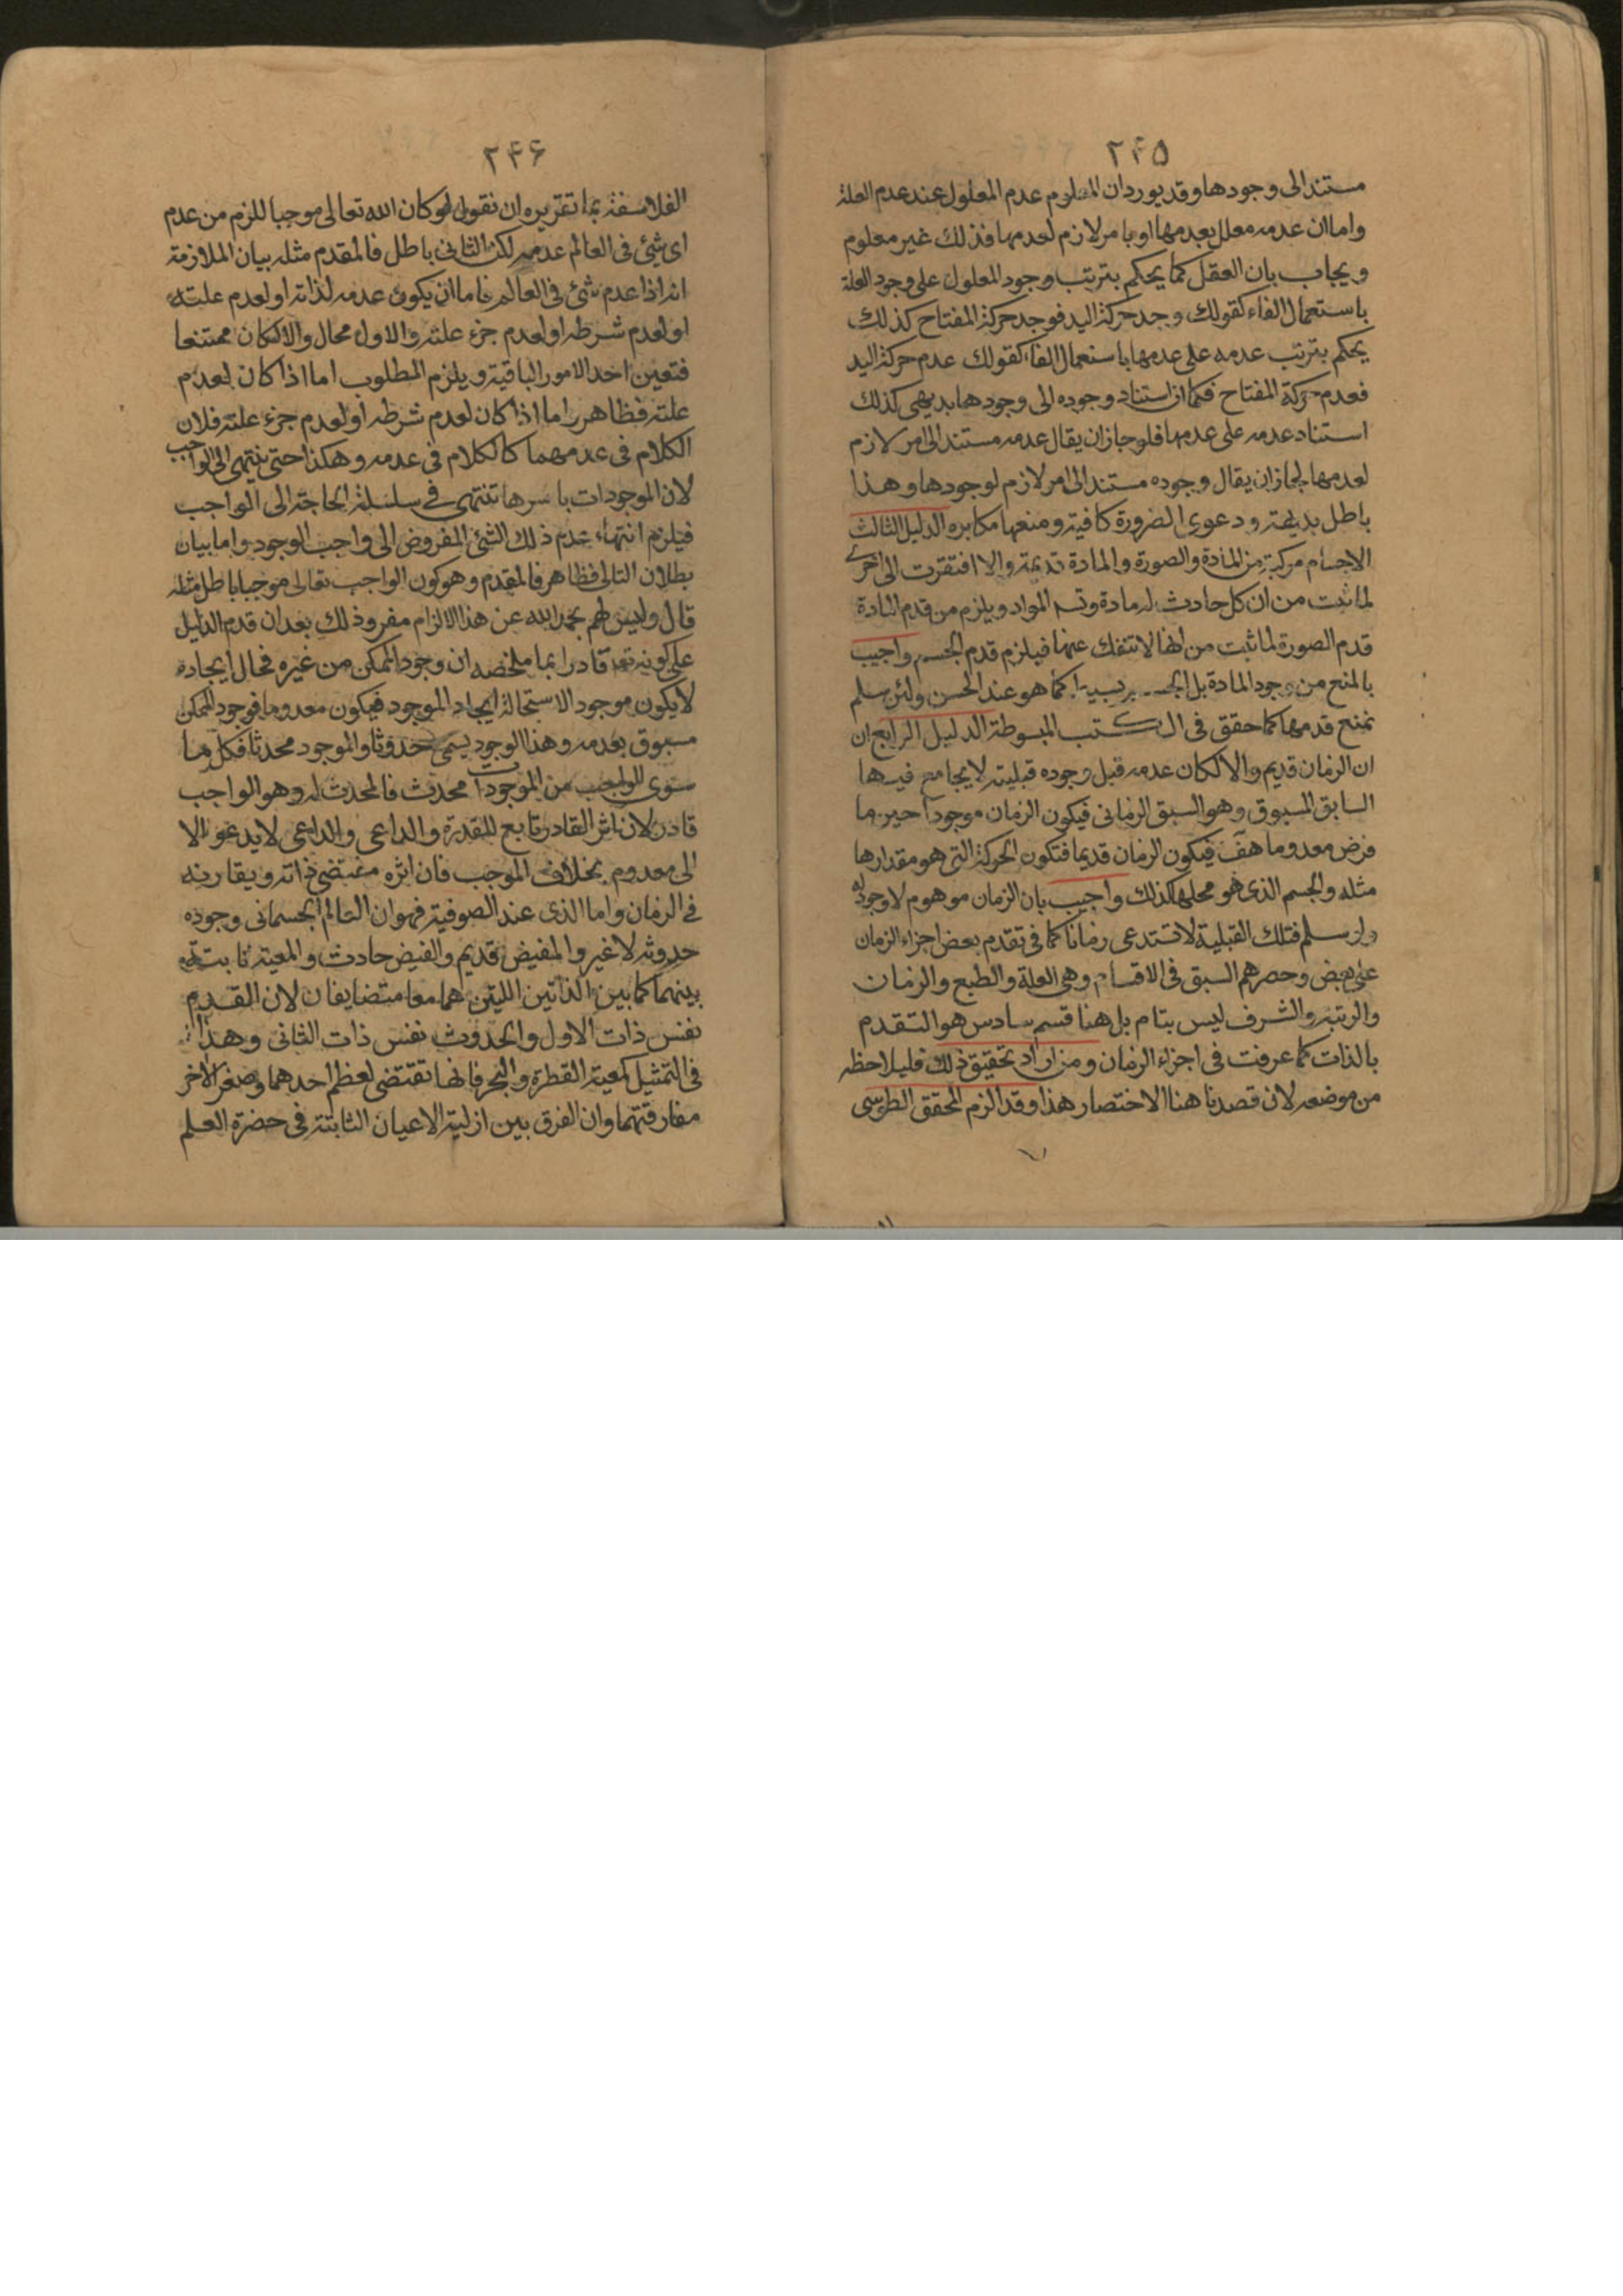 ٢٤٥
مستندالى وجودها وقد يورد ان المعلوم عدم المعلول عند عدم العلة
واما ان عدمه معلل بعدمها او بامر لازم لعدمها فذلك غير معلوم
ويجاب بان العقل كما يحكم بترتب وجود المعلول على وجود العلة
باستعمال الفاء كقولك وجد حركة اليد فوجد حركة المفتاح كذلك
يحكم بترتب عدمه على عدمها باستعمال الفاء كقولك عدم حركة اليد
فعدم حركة المفتاح فكما ان استناد وجوده الى وجودها بديهى كذلك
استناد عدمه على عدمها فلو جاز ان يقال عدمه مستند الى امر لازم
لعدمها لجاز ان يقال وجوده مستند الى امر لازم لوجودها وهذا
باطل بديهة ودعوى الضرورة كافية ومنعها مكابره الدليل الثالث
الاجسام مركبة من المادة والصورة والمادة قديمة والا افتقرت الى اخرى
لما ثبت من ان كل حادث له مادة وتسـ المواد ويلزم من قدم المادة
قدم الصورة لما ثبت من انها لا تنفك عنها فيلزم قدم الجسم واجيب
بالمنع من وجود المادة بل كما هو عند الحسن ولئن سلم
نمنع قدمها كما حقق فى الكتب المبسوطة الدليل الرابع ان
ان الزمان قديم والا لكان عدمه قبل وجوده قبلية لا يجامع فيها
السابق المسبوق وهو السبق الزمانى فيكون الزمان موجودا حين ما
فرض معدوما هف فيكون الزمان قديما فتكون الحركة التى هو مقدارها
مثله والجسم الذى هو محلها كذلك واجيب بان الزمان موهوم لا وجود له
وان سلم فتلك القبلية لا تستدعى زمانا كما فى تقدم بعض اجزاء الزمان
على بعض وحصرهم السبق فى الاقسام وهى العلة والطبع والزمان
والرتبة والشرف ليس بتام بل هنا قسم سادس هو التقدم
بالذات كما عرفت فى اجزاء الزمان ومن اراد تحقيق ذلك فليلاحظه
من موضعه لان قصدنا هنا الاختصار هذا وقد الزم المحقق الطوسى
٢٤۶
الفلاسفة بما تقريره ان نقول لو كان الله تعالى موجبا للزم من عدم
اى شئ فى العالم عدمه لكن الثانى باطل فالمقدم مثله بيان الملازمة
انه اذا عدم شئ فى العالم فاما ان يكون عدمه لذاته او لعدم علته
او لعدم شرطه او لعدم جزء علته والاول محال والا لكان ممتنعا
فتعين احد الامور الباقية ويلزم المطلوب اما اذا كان لعدم
علته فظاهر واما اذا كان لعدم شرطه او لعدم جزء علته فلان
الكلام فى عدمهما كالكلام فى عدمه وهكذا حتى ينتهى الى الواجب
لان الموجودات باسرها تنتهى فى سلسلة الحاجة الى الواجب
فيلزم انتهاء عدم ذلك الشئ المفروض الى واجب الوجود واما بيان
بطلان التالى فظاهر فالمقدم وهو كون الواجب تعالى موجبا باطل مثله
قال وليس لهم بحمد الله عن هذا الالزام مفر وذلك بعد ان قدم الدليل
على كونه تعـ قادرا بما ملخصه ان وجود الممكن من غيره فحال ايجاده
لا يكون موجود الاستحالة ايجاد الموجود فيكون معدوما فوجود الممكن
مسبوق بعدمه وهذا الوجود يسمى حدوثا والموجود محدثا فكل ما
سوى الواجب من الموجودات محدث فالمحدث له وهو الواجب
قادر لان اثر القادر تابع للقدرة والداعى والداعى لا يدعو الا
الى معدوم بخلاف الموجب فان اثره مقتضى ذاته ويقارنه
فى الزمان واما الذى عند الصوفية فهو ان العالم الجسمانى وجوده
حدوثه لا غير والمفيض قديم والفيض حادث والمعية ثابتة
بينهما كما بين الذاتين اللتين هما معا متضايفان لان القدم
نفس ذات الاول والحدوث نفس ذات الثانى وهذا
فى التمثيل كمعية القطرة والبحر فانها تقتضى لعظم احدهما وصغر الاخر
مفارقتهما وان الفرق بين ازلية الاعيان الثابتة فى حضرة العلم